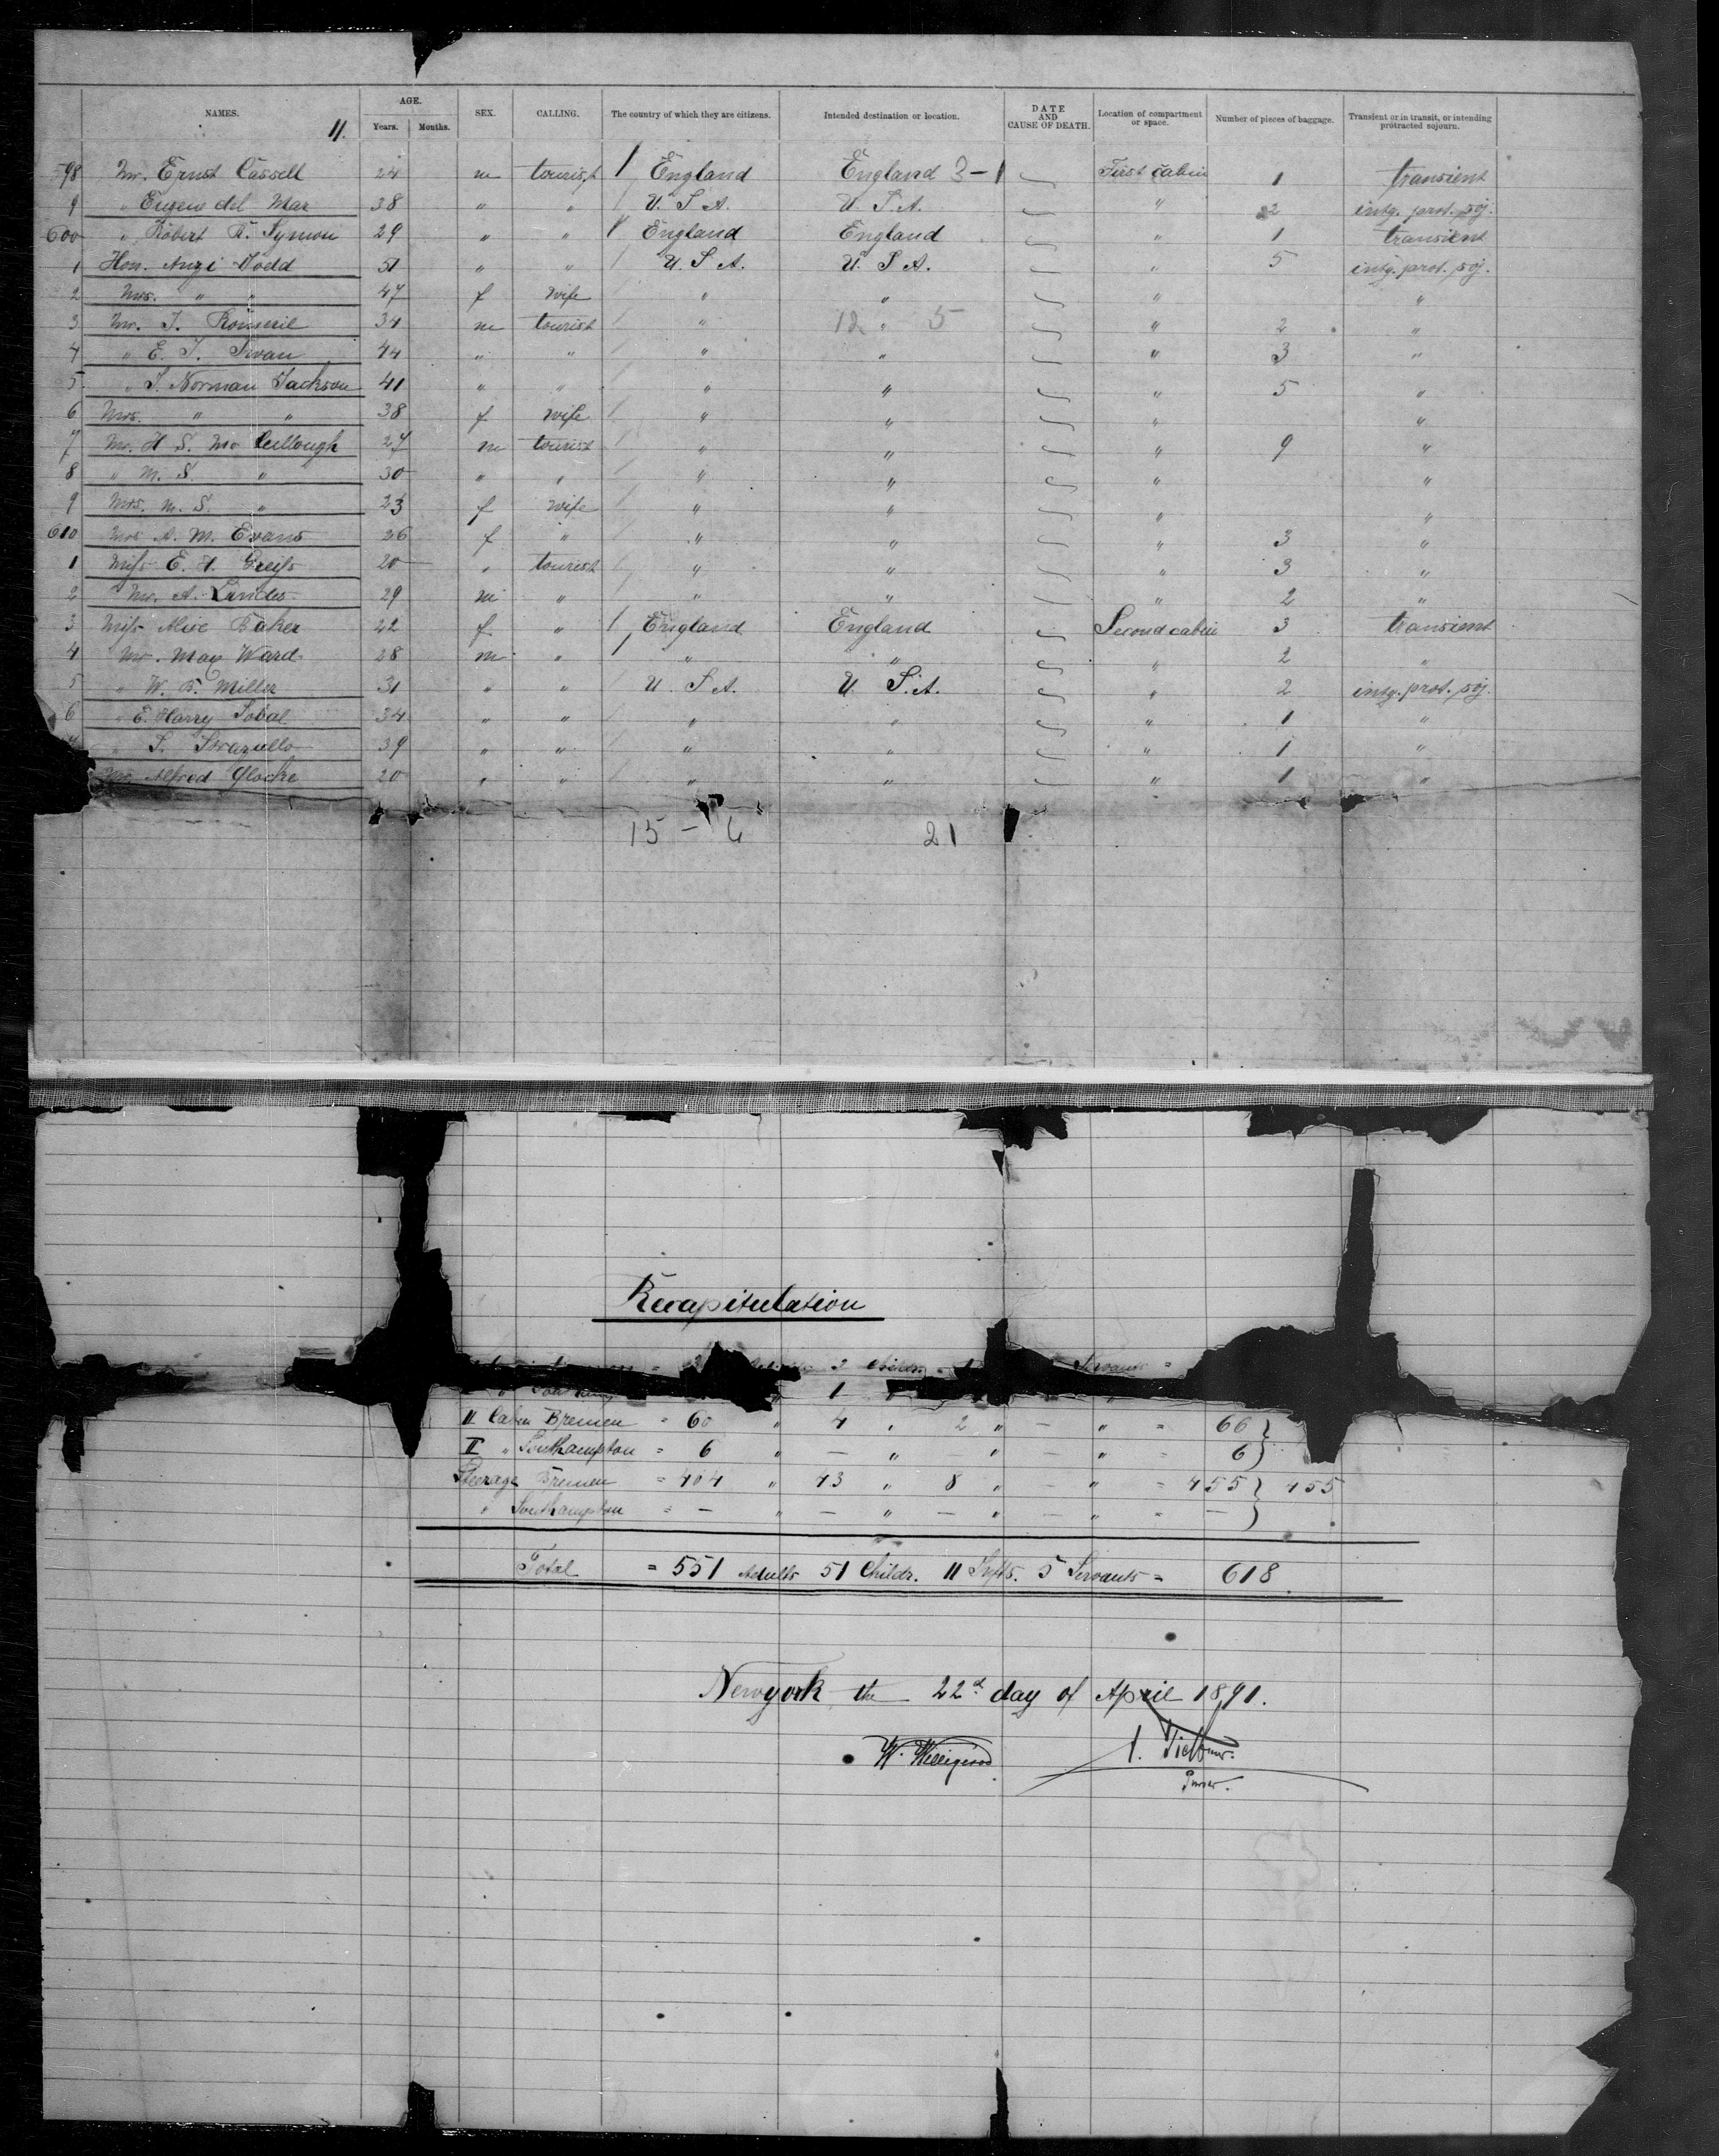 NAMES. AGE. Years. Months. SEX. CALLING. The country of which they are citizens. Intended destination or location. DATE AND CAUSE OF DEATH. Location of compartment or space. Number of pieces of baggage. Transient or in transit, or intending protracted sojourn.
11.
598 Mr. Ernst Cassell 24 m tourist / England England 3-1 First cabin 1 transient
9 " Eugene del Mar 38 " " / U. S. A. U. S. A. " 2 intg. prot. soj.
600 " Robert R. Symon 29 " " / England England " 1 transient
1 Hon. Anzi Dodd 51 " " / U. S. A. U. S. A. " 5 intg. prot. soj.
2 Mrs. " " 47 f wife / " " " "
3 Mr. T. Romeril 34 m tourist / " 12 " 5 " 2 "
4 " E. J. Swan 44 " " / " " " 3 "
5 " J. Norman Jackson 41 " " / " " " 5 "
6 Mrs. " " 38 f wife / " " " "
7 Mr. H S. Mc Cullough 27 m tourist / " " " 9 "
8 " M. S. " 30 " " / " " " "
9 Mrs. M. S. " 23 f wife / " " " "
610 Mrs A. M. Evans 26 f " / " " " 3 "
1 Miss E. H. 20 " tourist / " " " 3 "
2 Mr. A. Landes 29 m " / " " " 2 "
3 Miss Alice Baker 22 f " / England England Second cabin 3 transient
4 Mr. May Ward 28 m " / " " " 2 "
5 " W. B. Miller 31 " " U. S. A. U. S. A. " 2 intg. prot. soj.
6 " E. Harry 34 " " / " " " 1 "
7 " S. 39 " " / " " " 1 "
Mr. Alfred Glocke 20 " " / " " " 1 "
15 - 6 21
Recapitulation
= 2 Childr. Servants =
" 1 "
II Cabin Bremen = 60 " 4 " 2 " — " = 66 }
II " Southampton = 6 " — " " " = 6 }
Steerage Bremen = 404 " 43 " 8 " — " = 455 } 455
" Southampton = — " — " — " — " = — }
Total = 551 Adults 51 Childr. 11 Infts. 5 Servants = 618
Newyork, the 22d day of April 1891.
W. Willigerod
Purser.